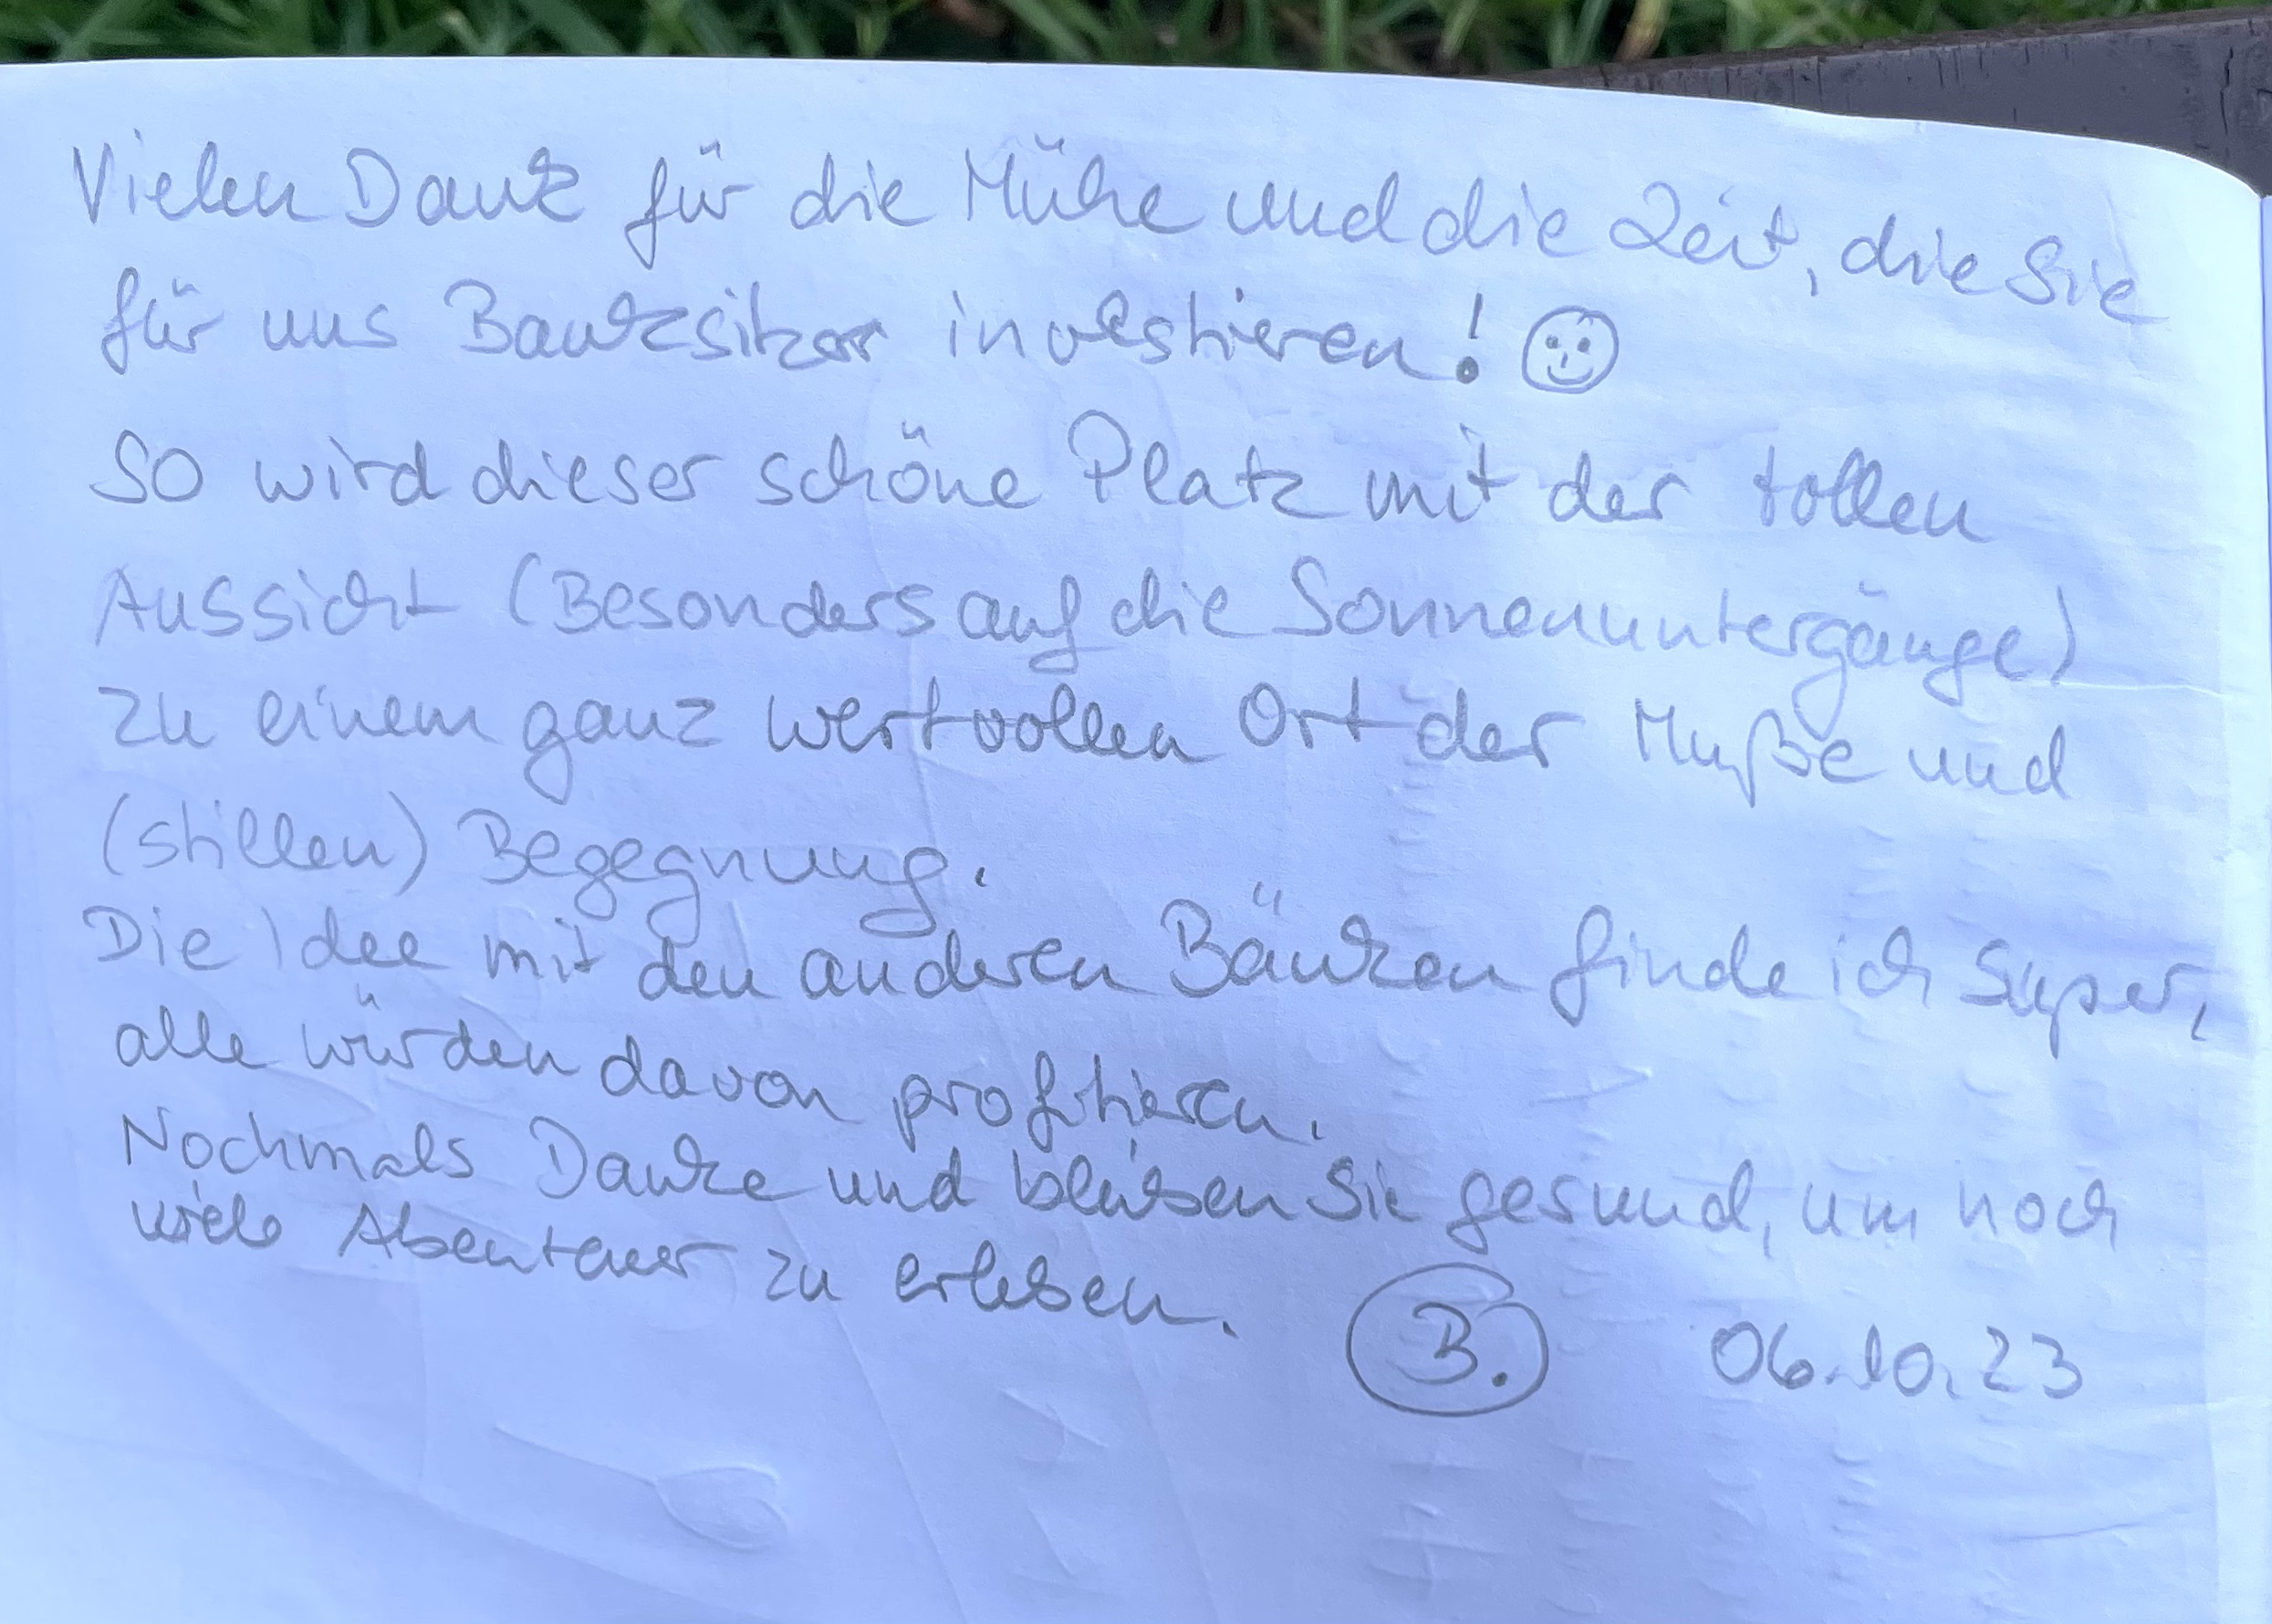 Vielen Dank für die Mühe und die Zeit, die Sie
für uns Banksitzer investieren! ☺
So wird dieser schöne Platz mit der tollen
Aussicht (Besonders auf die Sonnenuntergänge)
zu einem ganz wertvollen Ort der Muße und
(stillen) Begegnung.
Die Idee mit den anderen Bänken finde ich super,
alle würden davon profitieren.
Nochmals Danke und bleiben Sie gesund, um noch
viele Abenteuer zu erleben.
B. 06.10.23